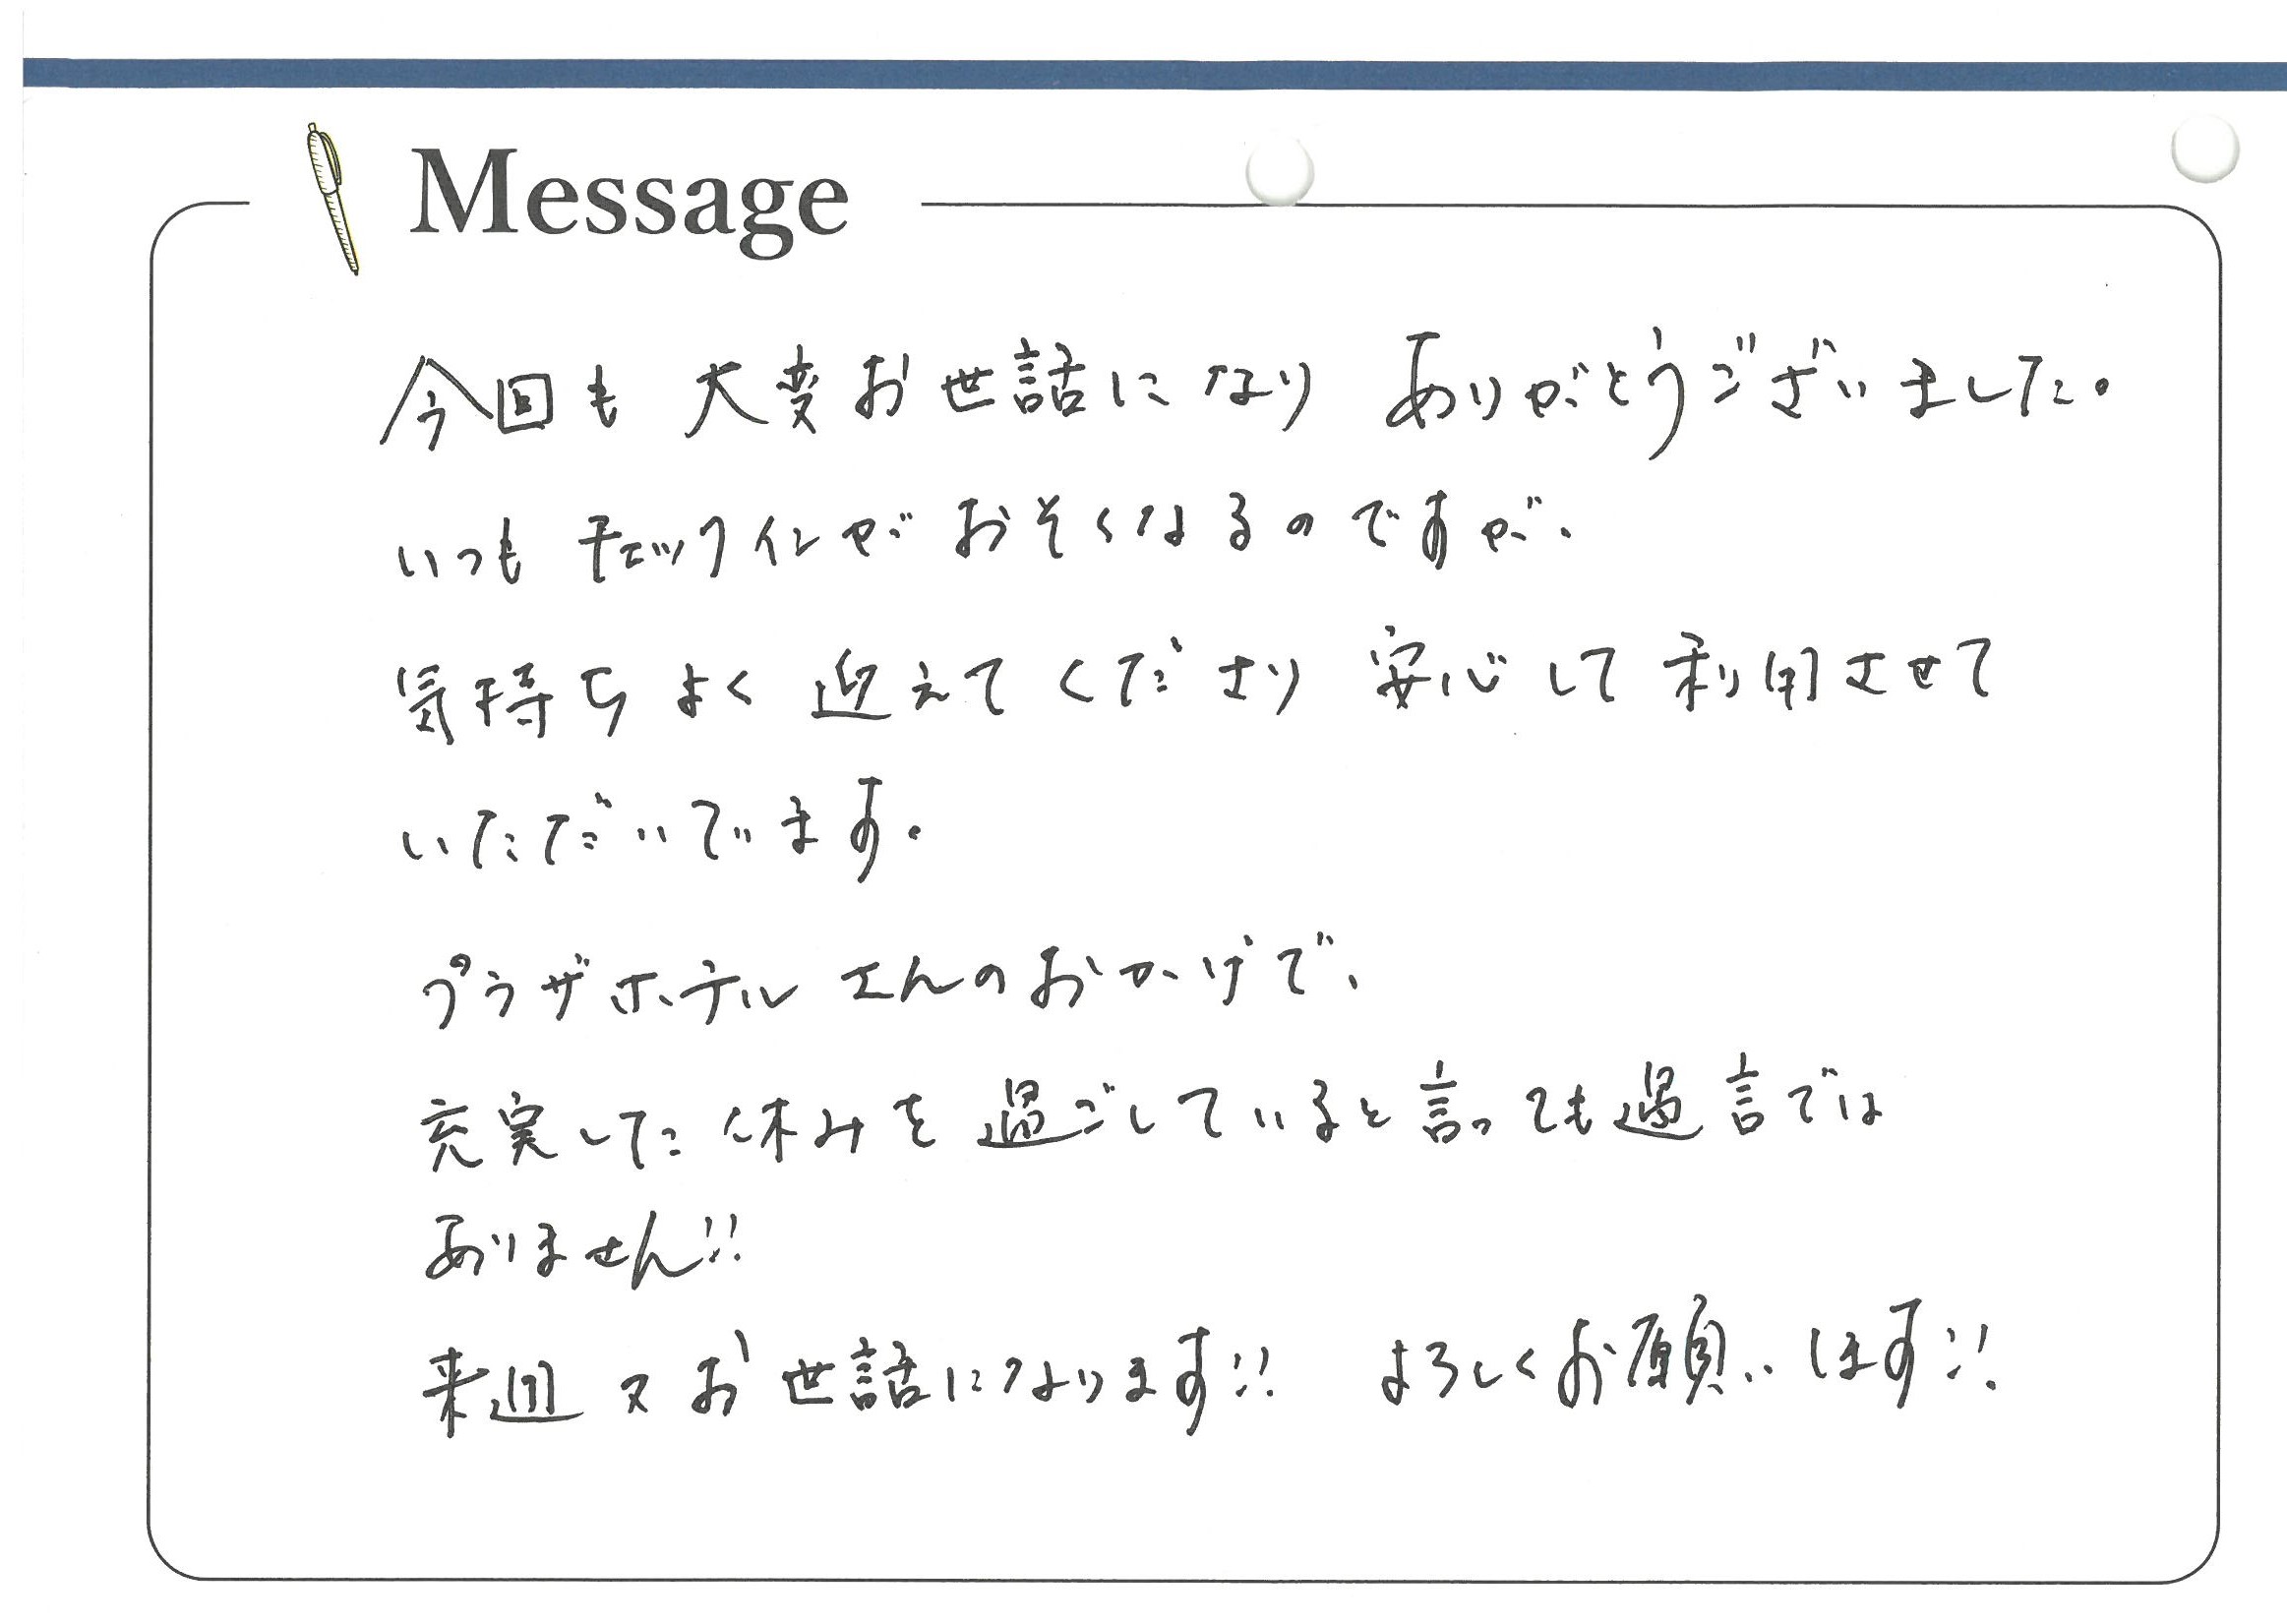 Message
今回も 大変お世話になり ありがとうございました。
いつも チェックインが おそくなるのですが、
気持ちよく 迎えてくださり 安心して利用させて
いただいてます。
プラザホテル さんのおかげで、
充実した 休みを過ごしていると言っても過言では
ありません!!
来週 又お世話になります!! よろしくお願いします!!